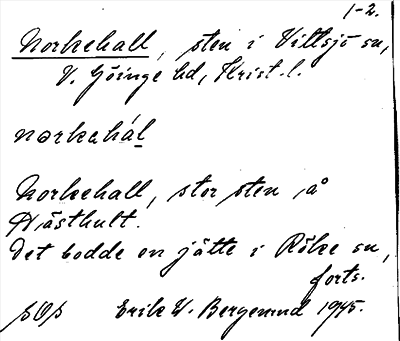 1-2.
Norkehall, sten i Vittsjö sn,
V. Göinge hd, Krist. l.
norkahál
Norkehall, stor sten å
Hästhult.
Det bodde en jätte i Röke sn,
forts.
SOS Erik W. Bergenud 1945.